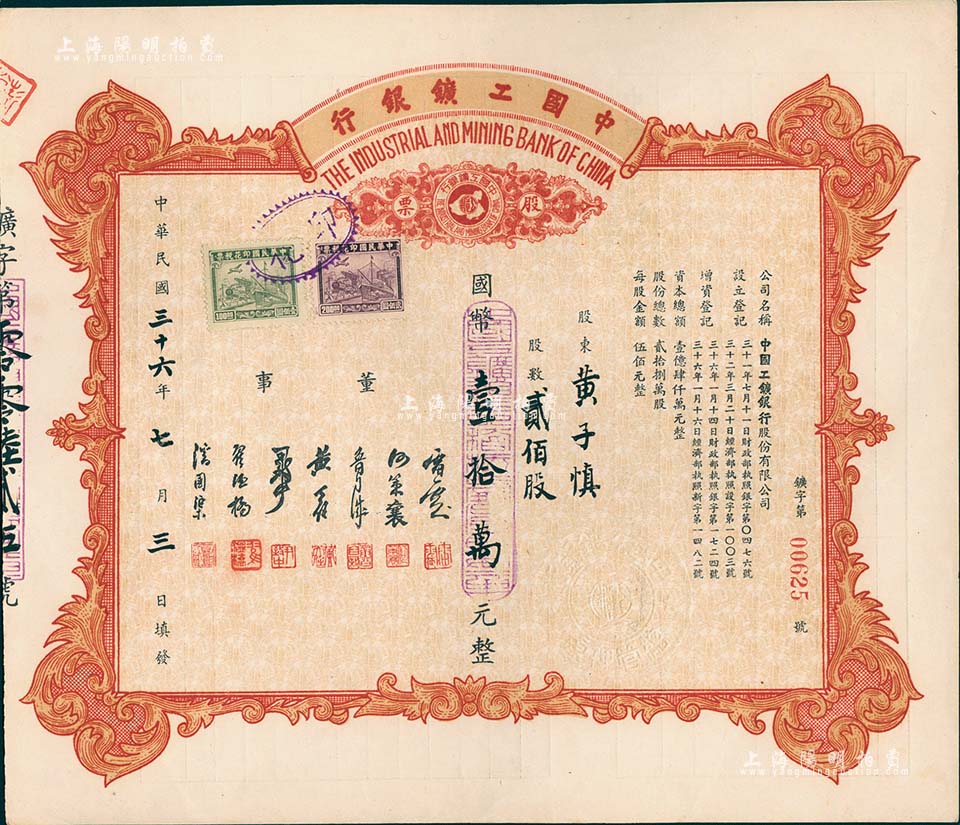 上海陽明拍賣
www.yangmingauction.com
中國工鑛銀行
THE INDUSTRIAL AND MINING BANK OF CHINA
股票
鑛字第 00625 號
公司名稱 中國工鑛銀行股份有限公司
設立登記 三十一年七月十一日財政部執照銀字第〇四七六號
三十二年三月二十日經濟部執照設字第一〇〇三號
增資登記 三十六年一月十四日財政部執照銀字第一七二四號
三十六年一月十六日經濟部執照新字第一四八二號
資本總額 壹億肆仟萬元整
股份總數 貳拾捌萬股
每股金額 伍佰元整
股東 黃子慎
股數 貳佰股
國幣 壹拾萬元整
董事
中華民國印花稅票
200
中華民國印花稅票
100
中華民國三十六年七月三日填發
鑛字第零零陸貳五號
上海陽明拍賣
www.yangmingauction.com
上海陽明拍賣
www.yangmingauction.com